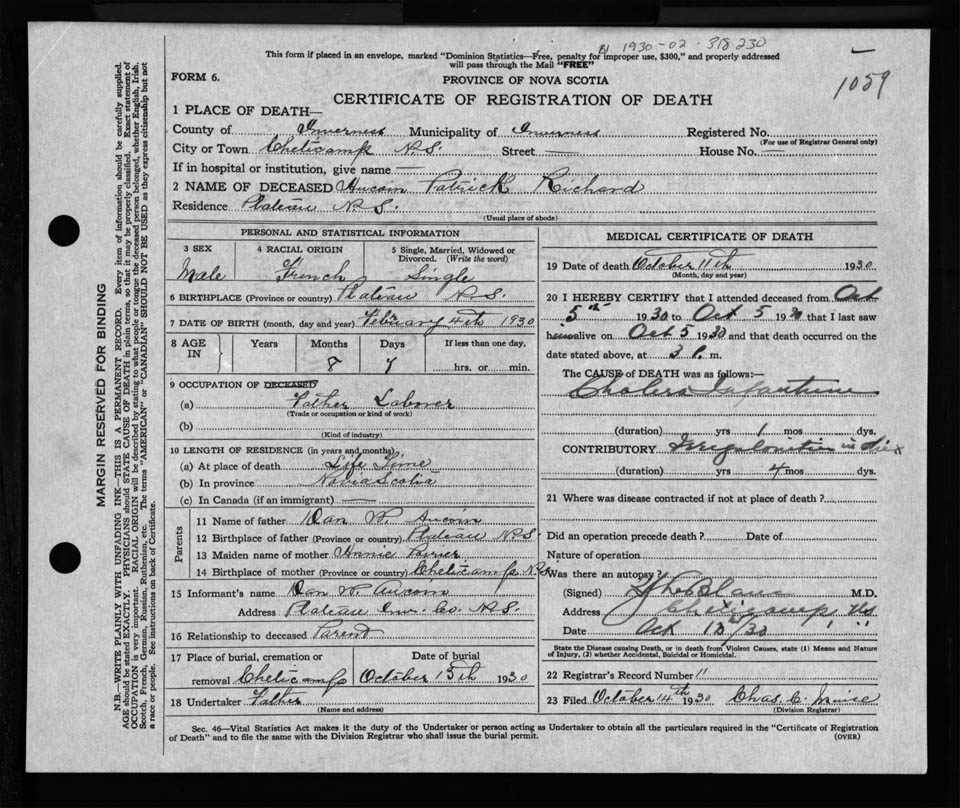 1930-02-318230
This form if placed in an envelope, marked "Dominion Statistics—Free, penalty for improper use, $300," and properly addressed
will pass through the Mail "FREE"
1059
FORM 6.
PROVINCE OF NOVA SCOTIA
CERTIFICATE OF REGISTRATION OF DEATH
1 PLACE OF DEATH—
County of Inverness Municipality of Inverness Registered No.
(For use of Registrar General only)
City or Town Cheticamp N.S. Street — House No. —
If in hospital or institution, give name —
2 NAME OF DECEASED Aucoin Patrick Richard
Residence Plateau N.S.
(Usual place of abode)
PERSONAL AND STATISTICAL INFORMATION
3 SEX 4 RACIAL ORIGIN 5 Single, Married, Widowed or
Divorced. (Write the word)
Male French Single
6 BIRTHPLACE (Province or country) Plateau N.S.
7 DATE OF BIRTH (month, day and year) Febuary 4th 1930
8 AGE IN Years Months Days If less than one day,
8 7 hrs. or min.
9 OCCUPATION OF DECEASED
(a) Father Laborer
(Trade or occupation or kind of work)
(b)
(Kind of industry)
10 LENGTH OF RESIDENCE (in years and months)
(a) At place of death Life Time
(b) In province Nova Scotia
(c) In Canada (if an immigrant) —
Parents
11 Name of father Dan W. Aucoin
12 Birthplace of father (Province or country) Plateau N.S.
13 Maiden name of mother Annie
14 Birthplace of mother (Province or country) Cheticamp N.S.
15 Informant's name Dan W. Aucoin
Address Plateau Inv. Co. N.S.
16 Relationship to deceased Parent
17 Place of burial, cremation or Date of burial
removal Cheticamp October 15th 1930
18 Undertaker Father
(Name and address)
MEDICAL CERTIFICATE OF DEATH
19 Date of death October 11th 1930
(Month, day and year)
20 I HEREBY CERTIFY that I attended deceased from Oct
5th 1930 to Oct 5 1930 that I last saw
alive on Oct 5 1930 and that death occurred on the
date stated above, at 3 P. m.
The CAUSE of DEATH was as follows:—
Cholera Infantum
(duration) yrs 1 mos dys.
CONTRIBUTORY Irregularities in diet
(duration) yrs 4 mos dys.
21 Where was disease contracted if not at place of death?
Did an operation precede death? Date of
Nature of operation
Was there an autopsy?
(Signed) LeBlanc M.D.
Address Cheticamp NS
Date Oct 12/30 " "
State the Disease causing Death, or in death from Violent Causes, state (1) Means and Nature
of Injury, (2) whether Accidental, Suicidal or Homicidal.
22 Registrar's Record Number 11
23 Filed October 14th 1930 Chas. C.
(Division Registrar)
Sec. 46—Vital Statistics Act makes it the duty of the Undertaker or person acting as Undertaker to obtain all the particulars required in the "Certificate of Registration
of Death" and to file the same with the Division Registrar who shall issue the burial permit.
(OVER)
MARGIN RESERVED FOR BINDING
N.B.—WRITE PLAINLY WITH UNFADING INK—THIS IS A PERMANENT RECORD. Every item of information should be carefully supplied.
AGE should be stated EXACTLY. PHYSICIANS should STATE CAUSE OF DEATH in plain terms, so that it may be properly classified. Exact statement of
OCCUPATION is very important. RACIAL ORIGIN will be described by stating to what people or tongue the deceased person belonged, whether English, Irish,
Scotch, French, German, Russian, Ruthenian, etc. The terms "AMERICAN" or "CANADIAN" SHOULD NOT BE USED as they express citizenship but not
a race or people. See instructions on back of Certificate.